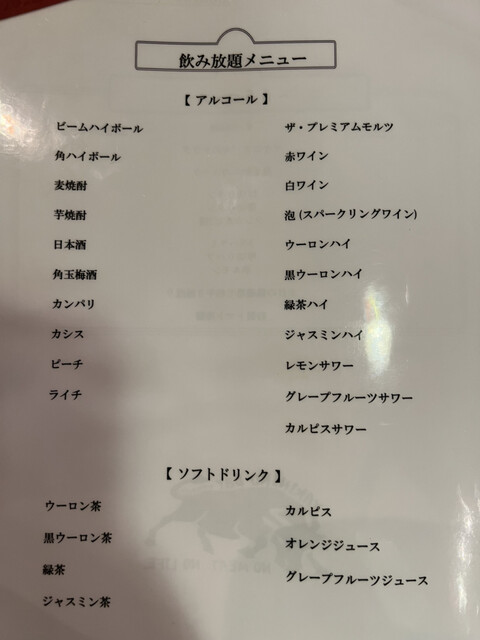 飲み放題メニュー
【 アルコール 】
ビームハイボール
角ハイボール
麦焼酎
芋焼酎
日本酒
角玉梅酒
カンパリ
カシス
ピーチ
ライチ
ザ・プレミアムモルツ
赤ワイン
白ワイン
泡 (スパークリングワイン)
ウーロンハイ
黒ウーロンハイ
緑茶ハイ
ジャスミンハイ
レモンサワー
グレープフルーツサワー
カルピスサワー
【 ソフトドリンク 】
ウーロン茶
黒ウーロン茶
緑茶
ジャスミン茶
カルピス
オレンジジュース
グレープフルーツジュース